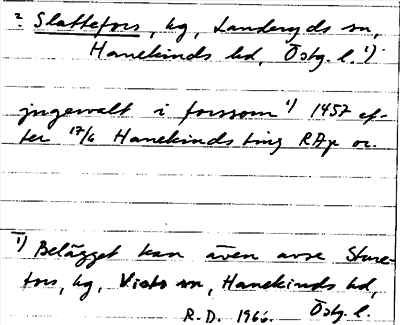 ? Slattefors, hg, Landeryds sn,
Hanekinds hd, Östg. l. 1)
jngewalt i forssom 1) 1457 ef-
ter 17/6 Hanekinds ting RAp or.
1) Belägget kan även avse Sture-
fors, hg, Vists sn, Hanekinds hd,
R.D. 1966. Östg. l.